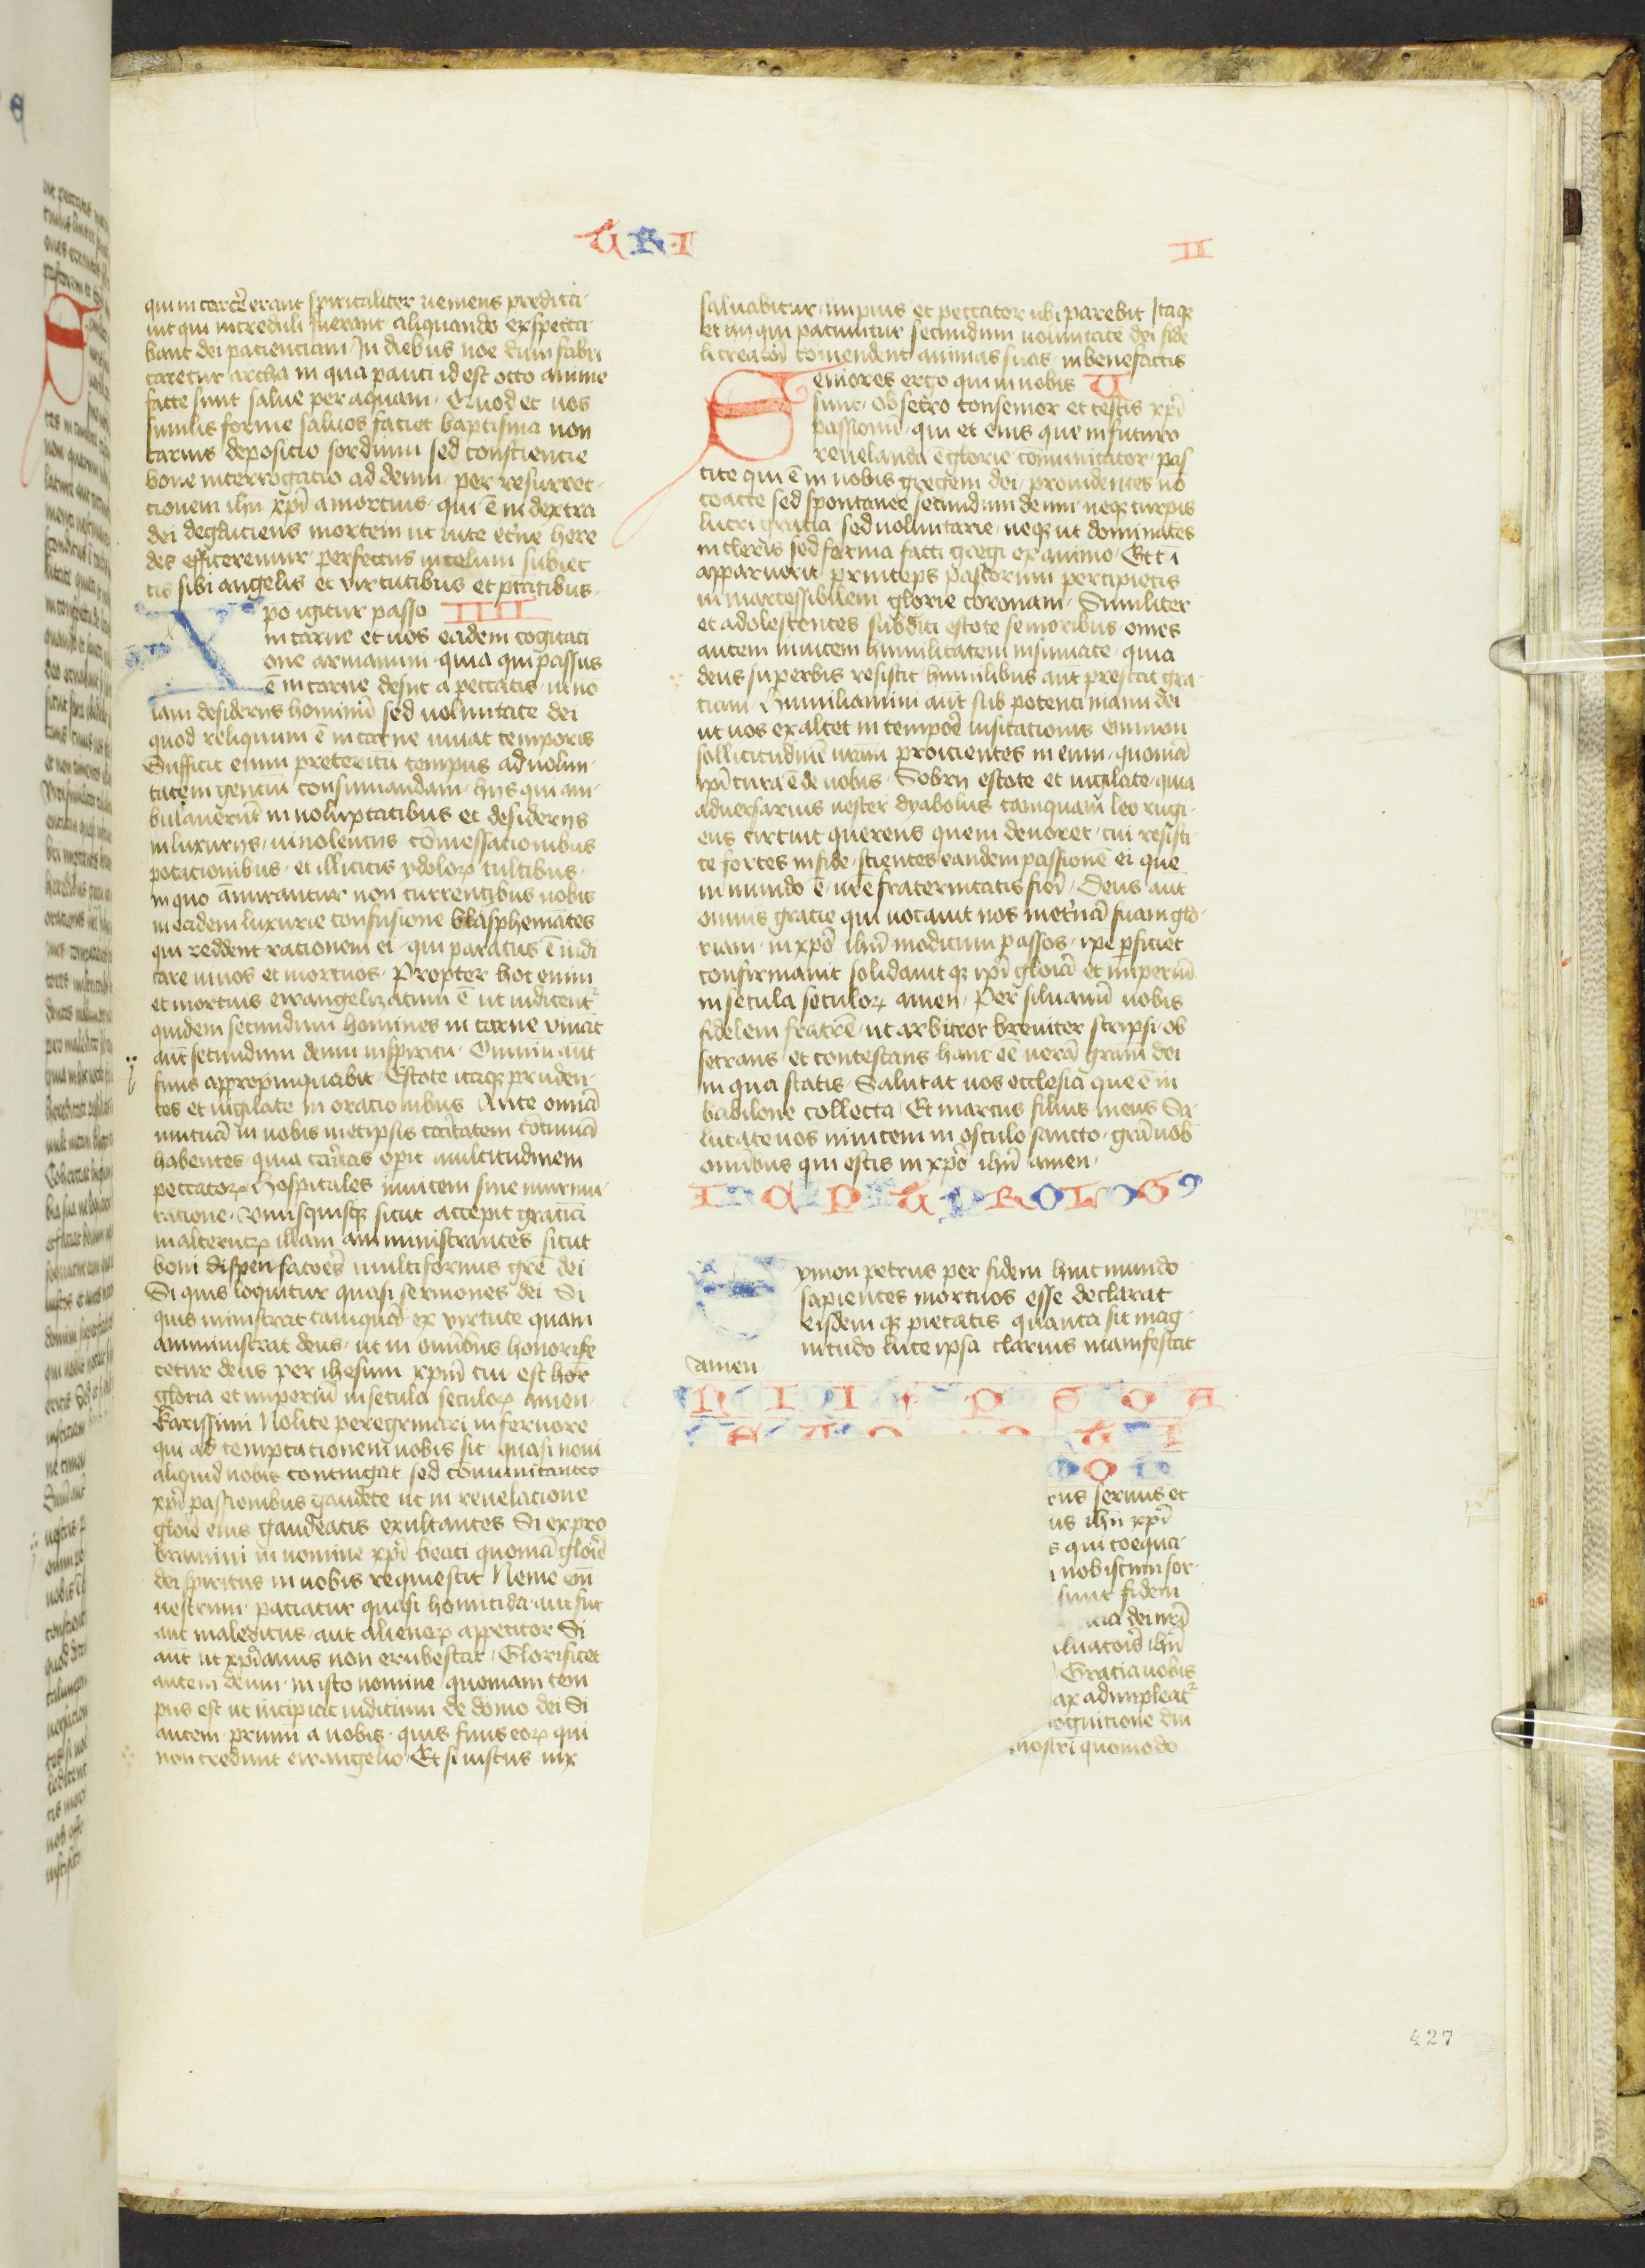 TRI
II
qui in carcere erant spiritaliter veniens predica
uit qui increduli fuerant aliquando exspecta
bant dei pacienciam In diebus noe dum fabri
caretur archa in qua pauci id est octo anime
facte sunt salue per aquam. Quod et uos
similis forme saluos faciet baptisma non
carnis deposicio sordium sed consciencie
bone interrogacio ad deum per resurrec
cionem ihu xpi a mortuis qui ē in dextra
dei deglutiens mortem ut uite et'ne here
des efficeremur perfectus in celum subiec
tis sibi angelis et virtutibus et ptatibus
Xpo igitur passo IIII
in carne et uos eadem cogitaci
one armamini quia qui passus
ē in carne desiit a peccatis ut nō
iam desideriis hominū sed uoluntate dei
quod reliquum ē in carne uiuat temporis
Sufficit enim preteritū tempus ad uolun
tatem genciū consumandam hijs qui am
bulauerūt in uoluptatibus et desiderijs
in luxurijs uinolencijs cōmessacionibus
potacionibus et illicitis ydoloꝝ cultibus
in quo āmirantur non currentibus uobis
in eadem luxurie confusione blasphemātes
qui reddent racionem ei qui paratus ē iudi
care uiuos et mortuos. Propter hoc enim
et mortuis ewangelizatum ē ut iudicent'
quidem secundum homines in carne viuāt
aūt secundum deum in spiritu. Omniū aūt
finis appropinquabit Estote itaqꝫ pruden
tes et uigilate in oracionibus Ante omīa
mutuā in uobis metipsis caritatem cōtinuā
habentes quia caritas opit multitudinem
peccatoꝝ Hospitales inuicem sine murmu
racione. Unusquisqꝫ sicut accepit graciā
in alterutꝝ illam amministrantes sicut
boni dispensatores multiformis gr̄e dei
Si quis loquitur quasi sermones dei Si
quis ministrat tamquā ex virtute quam
amministrat deus ut in omībus honorifi
cetur deus per ihesum xpm cui est
gloria et imperiū in secula seculoꝝ amen.
Karissimi Nolite peregrinari in feruore
qui ad temptacionem uobis fit quasi noui
aliquid uobis contingat sed cōmunicantes
xpi passionibus gaudete ut in reuelacione
glorie eius gaudeatis exultantes Si expro
bramini in nomine xpi beati quoniā glorie
dei spiritus in uobis requiescit Nemo
uestrum paciatur quasi homicida aut fur
aut maledicus aut alienoꝝ appetitor Si
aūt ut xpianus non erubescat Glorificet
autem deum in isto nomine quoniam tem
pus est ut incipiat iudicium de domo dei Si
autem primū a uobis quis finis eoꝝ qui
non credunt ewangelio. Et si iustus uix
saluabitur impius et peccator ubi parebit Itaqꝫ
et hij qui paciuntur secundum uoluntatē dei fide
li creatori cōmendent animas suas in benefactis
Seniores ergo qui in uobis V
sunt obsecro consenior et testis xpi
passionū qui et eius que in futuro
reuelanda ē glorie cōmunicator pas
cite qui ē in uobis gregem dei prouidentes nō
coacte sed spontanee secundum deum neqꝫ turpis
lucri gracia sed uoluntarie neqꝫ ut dominātes
in cleris sed forma facti gregi ex animo Et cū
apparuerit princeps pastorum percipietis
inmarcessibilem glorie coronam. Similiter
et adolescentes subditi estote senioribus omēs
autem inuicem humilitatem insinuate quia
deus superbis resistit humilibus aūt prestat gra
ciam Humiliamini aūt sub potenti manu dei
ut uos exaltet in tempore uisitacionis omnem
sollicitudinē uram proicientes in eum quoniā
ipi cura ē de uobis. Sobrij estote et uigilate quia
aduersarius uester dyabolus tamquam leo rugi
ens circuit querens quem deuoret cui resisti
te fortes in fide scientes eandem passionē ei que
in mundo ē ure fraternitatis fieri Deus aūt
omnis gracie qui uocauit nos in et'nā suam glo
riam in xpō ihū modicum passos ipē pficiet
confirmauit solidauitqꝫ ipi gloriā et imperiū
in secula seculoꝝ amen. Per siluanū uobis
fidelem fratrē ut arbitror breuiter scripsi ob
secrans et contestans hanc eē uerā gr̄am dei
in qua statis. Salutat uos ecclesia que ē in
babilone collecta Et marcus filius meus Sa
lutate uos inuicem in osculo sancto gr̄a uob
omībus qui estis in xpō ihū amen.
INCIPIT PROLOG9
Symon petrus per fidem huic mundo
sapientes mortuos esse declarat
eisdemqꝫ pietatis quanta sit mag
nitudo luce ipsa clarius manifestat
amen
rus seruus et
us ihu xpi
s qui coequa
nobiscum sor
sunt fidem
icia dei nri
luatoris ihu
Gracia uobis
ax adimpleat'
ognicione dni
nostri quomodo
427